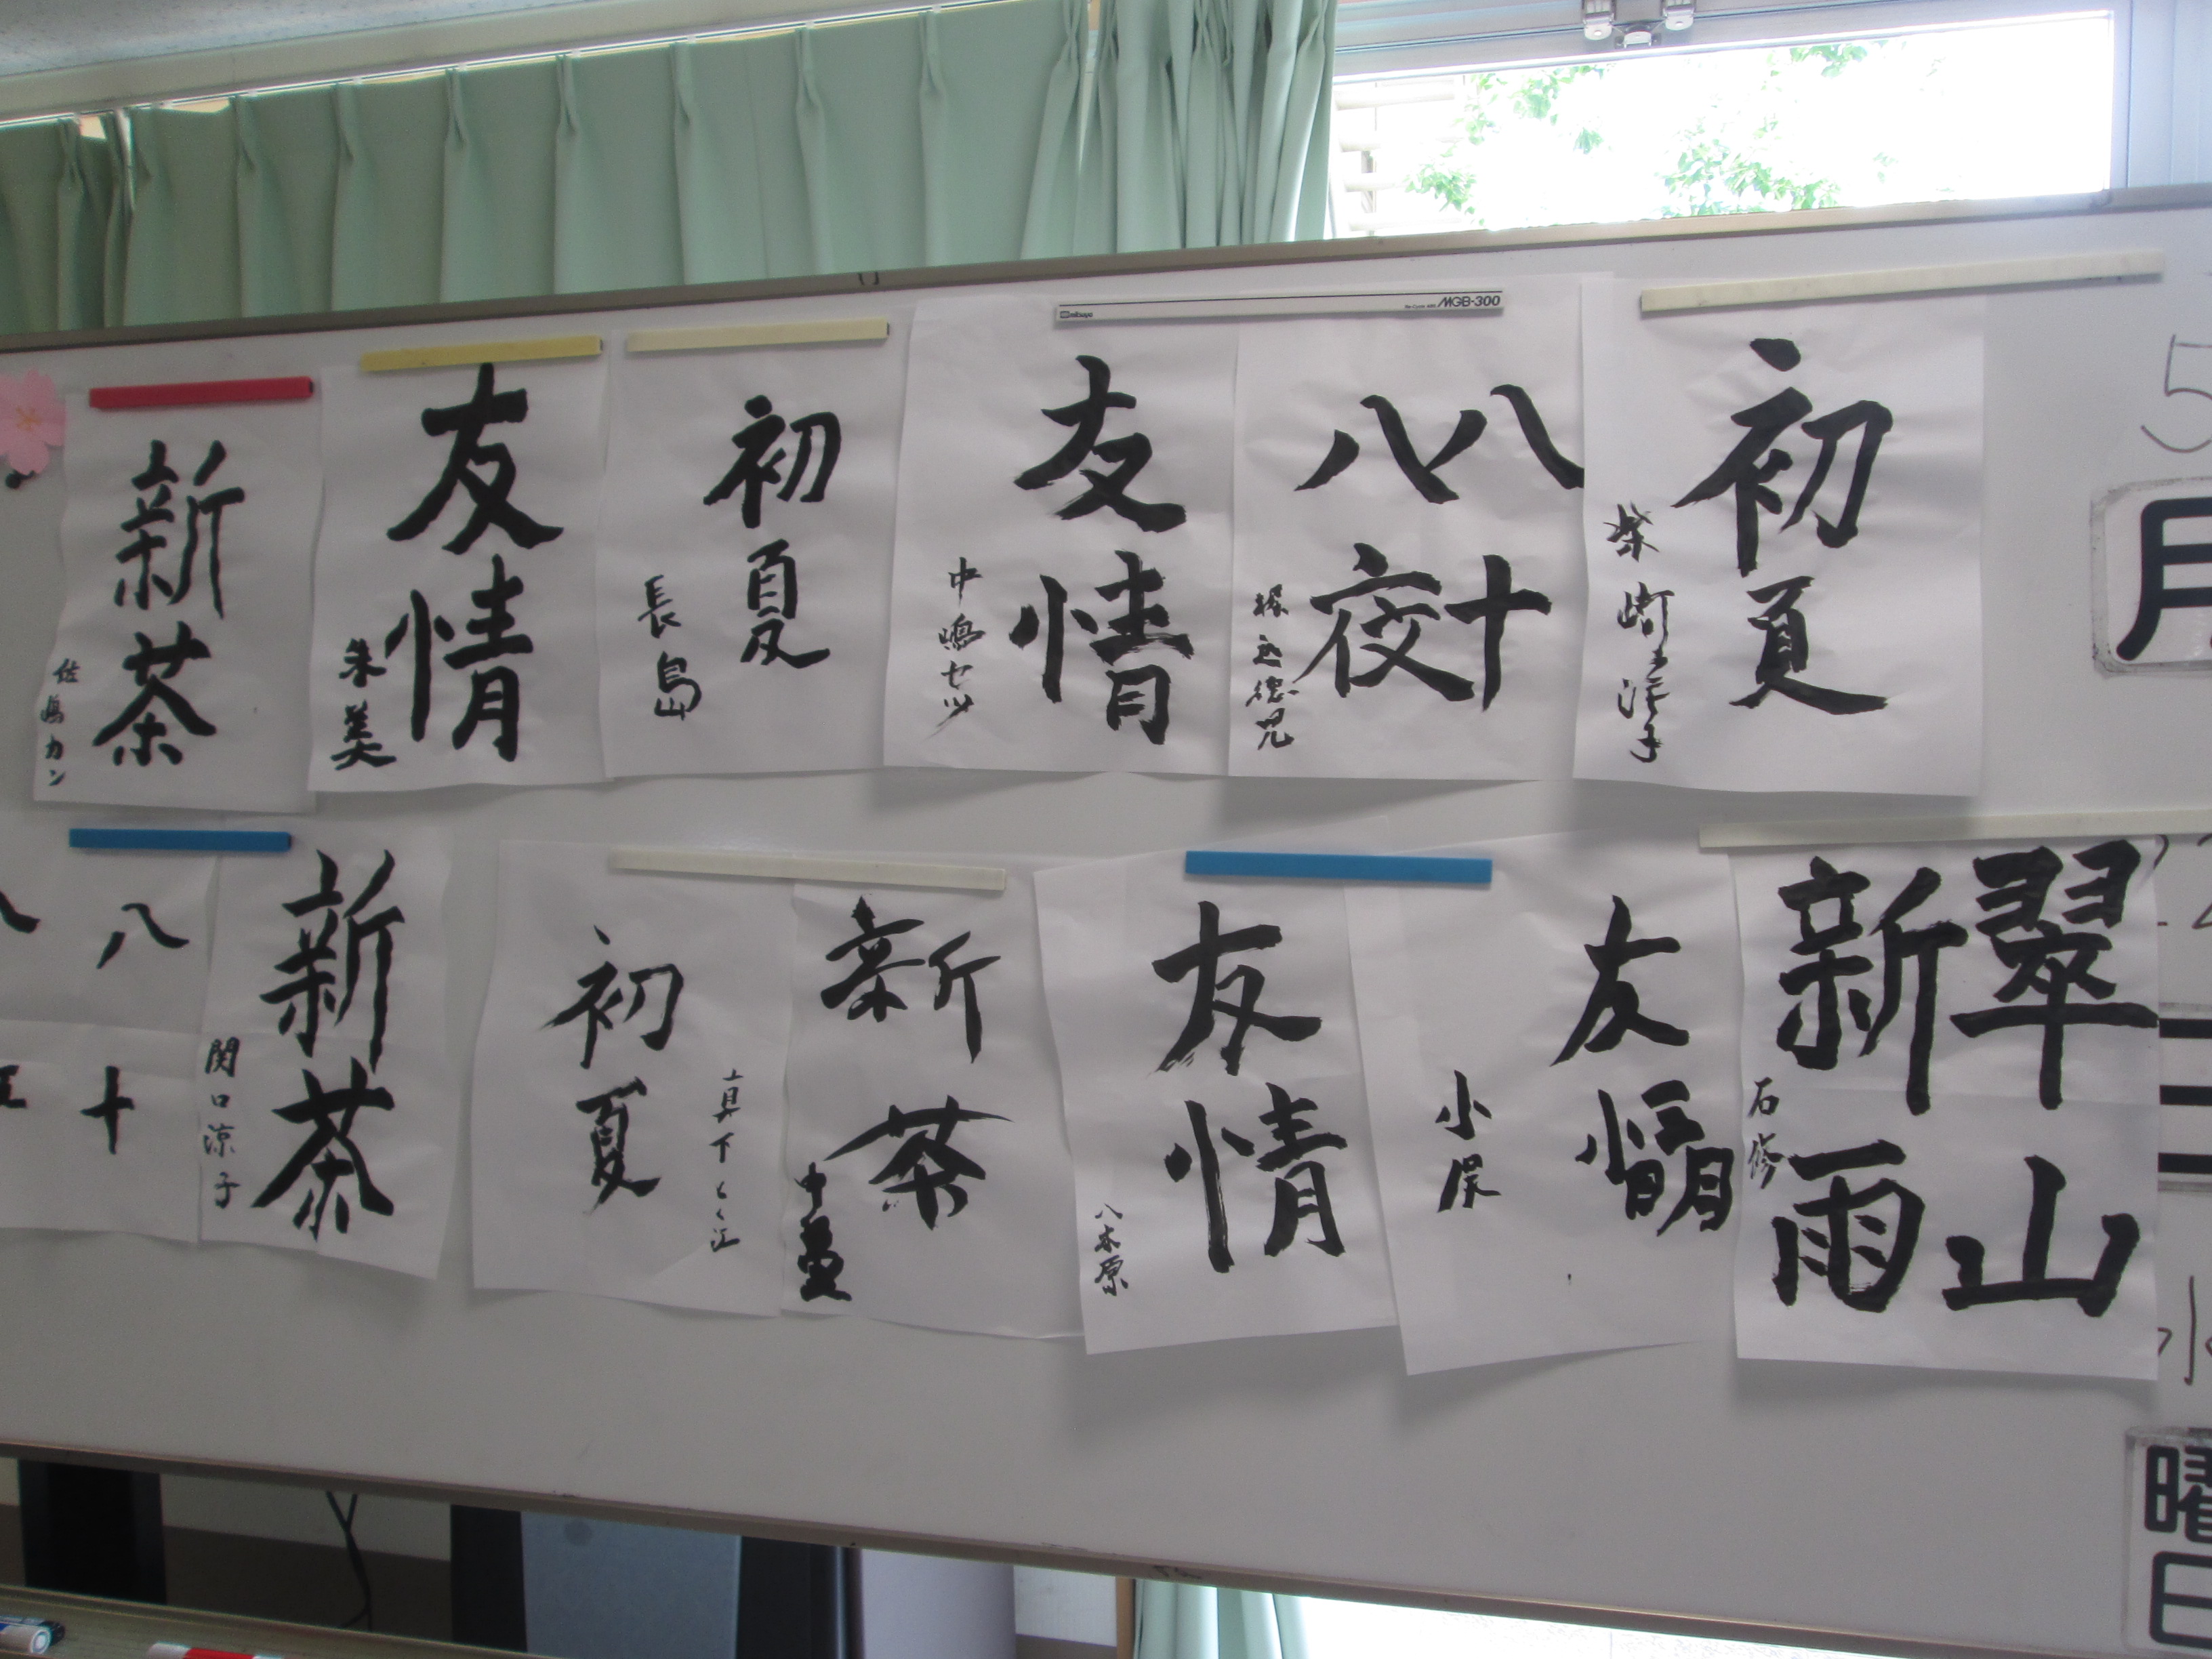 mitsuya MGB-300
新茶
佐嶋カン
友情
朱美
初夏
長島
友情
中嶋セツ
八十
八夜
初夏
5
月
八十
新茶
関口涼子
初夏
真下くく江
新茶
中臺
友情
八木原
友情
小岸
翠山
新雨
石修
水
曜
日